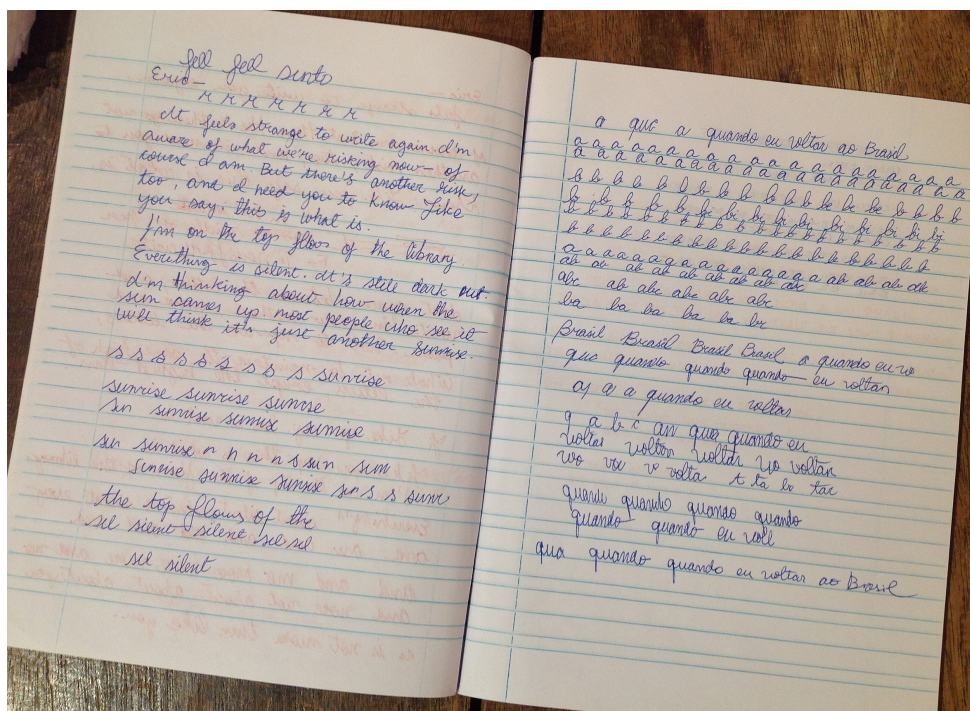 feel feel sinto
Eric—
r r r r r r r
It feels strange to write again. I'm
aware of what we're risking now— of
course I am. But there's another risk,
too, and I need you to know. Like
you say: this is what is.
I'm on the top floor of the library
Everything is silent. It's still dark out.
I'm thinking about how when the
sun comes up most people who see it
will think it's just another sunrise.
s s s s s s s s s sunrise
sunrise sunrise sunrise
sun sunrise sunrise sunrise
sun sunrise n n n n s sun sun
sunrise sunrise sunrise sun s s sunr
the top flows of the
sil sient silent sil sil
sil silent
a que a quando eu voltar ao Brasil
a a a a a a a a a a a a a a a a a a
a a a a a a a a a a a a a a a a a a
b b b b b b b b b b b b b b b b b
b b b b b b b b b b b b b b
b b b b b b b b b b b b b b b b b
b b b b b b b b b b b b b b b b b b
a a a a a a a a a a a a a ab ab ab
ab ab ab ab ab ab ab ab abc
abc ab abc abc abc abc
ba ba ba ba ba
Brasil Brasil Brasil Brasil a quando eu vo
que quando quando quando eu voltar
a quando eu voltar
a b c qua quando eu
voltar voltar voltar vo voltar
vo vo v volta t ta
quando quando quando quando
quando quando eu volt
qua quando quando eu voltar ao Brasil